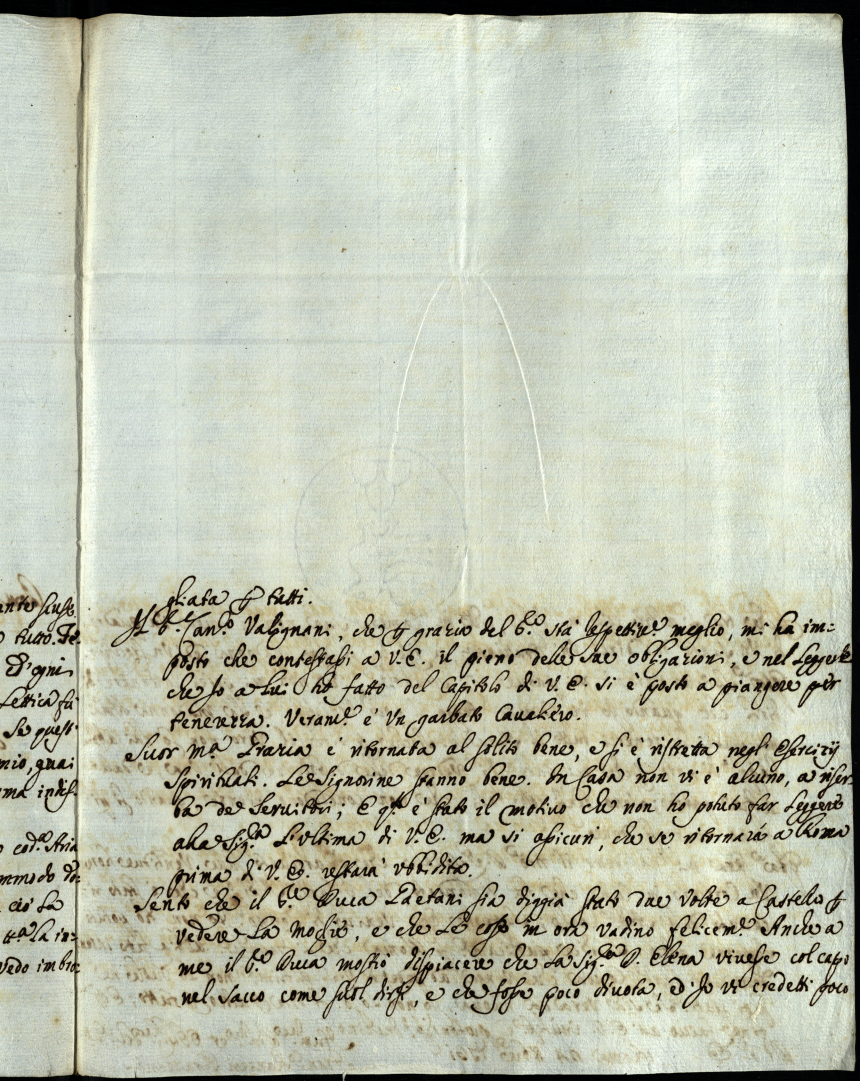 ante
e tutto. Te
d'ogni
Lettica fu
Se quest
mio, quai
ma indis:
cod.a Aria
mmodo
ciò La
tt.a La in:
vedo imbro:
gliata p tutti.
Il S.r Can.co Valignani, che p grazia del S.re stà rispettiv.e meglio, mi ha im=
posto che contestassi a V.E. il pieno delle sue obligazioni, e nel Leggere
che Io a Lui hò fatto del Capitolo di V.E. si è posto a piangere per
tenerezza. Veram.e è Un garbato Cavaliero.
Suor M.a Grazia è ritornata al solito bene, e si è ristretta negl'Esercizij
Spirituali. Le Signorine stanno bene. In Casa non vi è alcuno, a riser=
ba de Servitori; E q.to è stato il motivo che non ho potuto far Leggere
alla Sig.ra L'ultima di V.E. ma si assicuri, che se ritornarà a Roma
prima di V.E. restarà ubbidita.
Sento che il S.re Duca Gaetani sia diggià stato due volte a Castello p
vedere La Moglie, e che Le cose in ora vadino felicem.e Anche a
me il S.re Duca mostrò dispiacere che La Sig.ra D. Elena vivesse col capo
nel sacco come suol dirsi, e che fosse poco divota, ed Io vi credetti poco